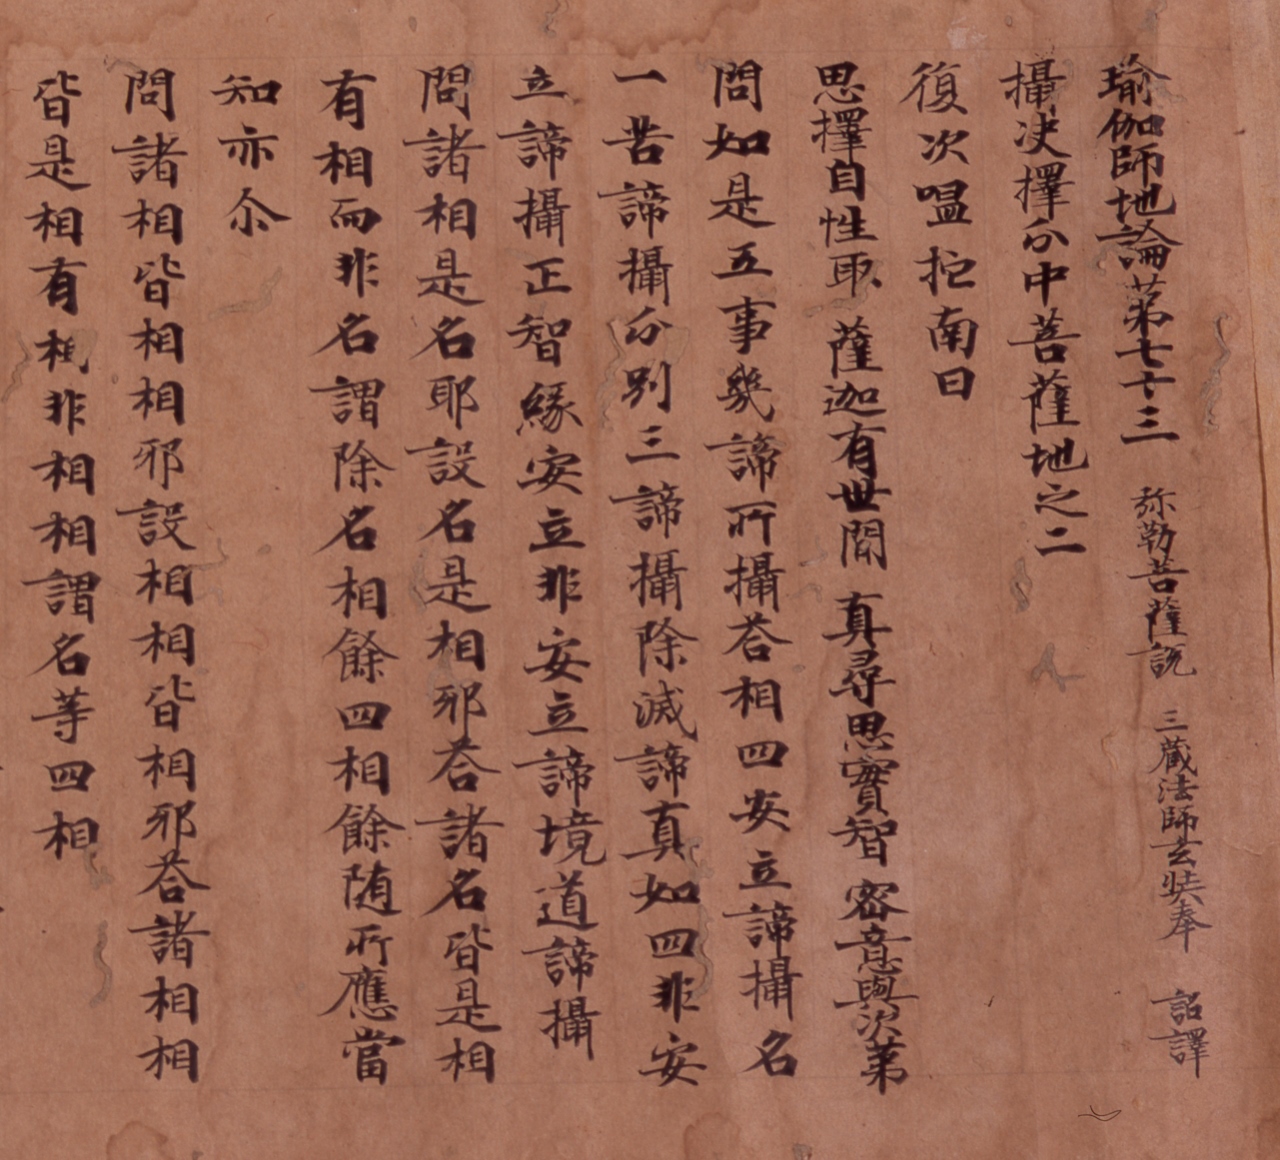 瑜伽師地論苐七十三 弥勒菩薩說 三藏法師玄奘奉 詔譯
攝決擇分中菩薩地之二
復次嗢拕南曰
思擇自性取 薩迦有世間 真尋思實智 密意與次苐
問如是五事幾諦所攝荅相四安立諦攝名
一苦諦攝分別三諦攝除滅諦真如四非安
立諦攝正智緣安立非安立諦境道諦攝
問諸相是名耶設名是相邪荅諸名皆是相
有相而非名謂除名相餘四相餘随所應當
知亦尒
問諸相皆相相邪設相相皆相邪荅諸相相
皆是相有相非相相謂名等四相